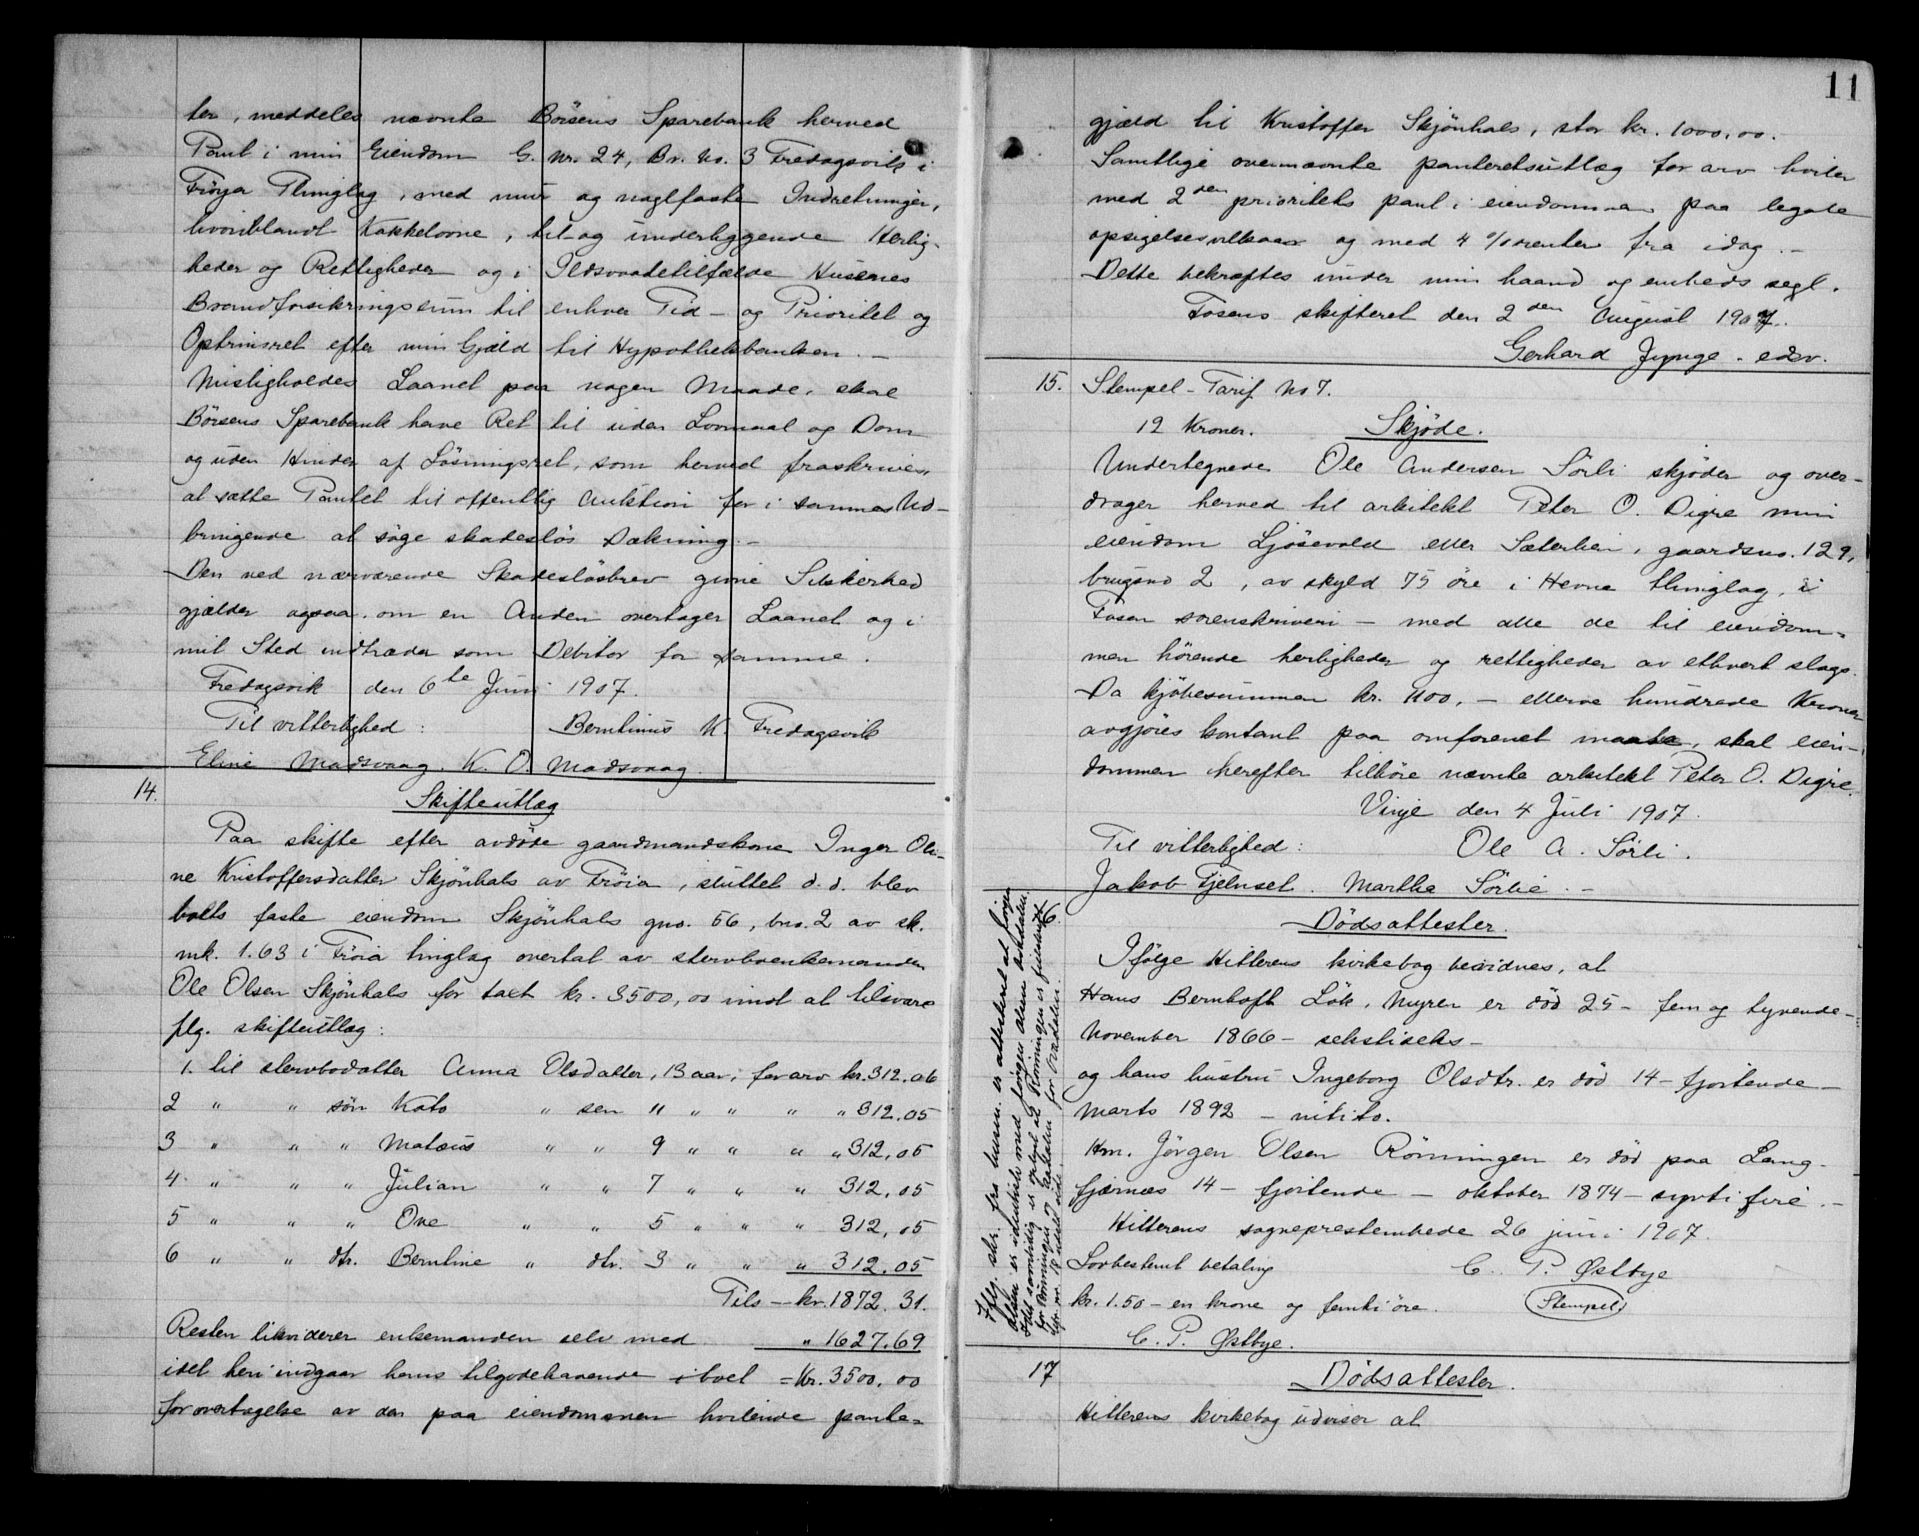 ter, meddeles nævnte Börsens Sparebank herved
Pant i min Eiendom G. Nr. 24, Br. No. 3 Fredagsvik i
Fröya Thinglag, med mur og naglfaste Indretninger,
hvoriblandt Kakkelovne, til- og underliggende Herlig-
heder og Rettigheder og i Ildsvaadetilfælde Husenes
Brandforsikringssum til enhver Tid - og Prioritet og
Optrinsret efter min Gjæld til Hypothekbanken. -
Misligholdes Laanet paa nogen Maade, skal
Börsens Sparebank have Ret til uden Lovmaal og Dom
og uden Hinder af Lösningsret, som herved fraskrives,
at sætte Pantet til offentlig Auktion for i sammes Ud-
bringende at söge skadeslös Dækning. -
Den ved nærværende Skadeslösbrev givne Sikkerhed
gjælder ogsaa, om en Anden overtager Laanet og i
mit Sted indtræder som Debitor for samme.
Fredagsvik den 6te Juni 1907.
Til vitterlighed: Berntinus K. Fredagsvik
Eline Madsvaag. K. O. Madsvaag.
14. Skifteutlæg
Paa skifte efter avdöde gaardmandskone Inger Oli-
ne Kristoffersdatter Skjönhals av Fröia, sluttet d. d. blev
boets faste eiendom Skjönhals gno. 56, bno. 2 av sk.
mk. 1.63 i Fröia tinglag overtat av stervboenkemanden
Ole Olsen Skjönhals for taxt kr. 3500,00 imot at tilsvare
flg. skifteutlæg:
1. til stervbodatter Anna Olsdatter, 13 aar, for arv kr. 312.06
2 " " sön Kato " sen 11 " " " " 312.05
3 " " " Mateus " " 9 " " " " 312,05
4 " " " Julian " " 7 " " " 312,05
5 " " " Ove " " 5 " " " 312,05
6 " " dtr. Berntine " dtr. 3 " " " 312.05
Tils - kr. 1872.31.
Resten likviderer enkemanden selv med " 1627.69
idet heri indgaar hans tilgodehavende i boet = Kr. 3500,00
for overtagelse av den paa eiendommen hvilende pante-
11
gjæld til Kristoffer Skjönhals, stor kr. 1000,00.
Samtlige overnævnte panteretsutlæg for arv hviler
med 2den prioritets pant i eiendommen paa legale
opsigelsesvilkaar og med 4 % renter fra idag. -
Dette bekræftes under min haand og embeds segl.
Fosens skifteret den 2den August 1907.
Gerhard Jynge. edsv.
15. Stempel-Tarif No 7.
12 Kroner. Skjöde.
Undertegnede Ole Andersen Sörli skjöder og over-
drager herved til arkitekt Peter O. Digre min
eiendom Ljösevold eller Sæterlien, gaardsno. 129,
brugsno 2, av skyld 75 öre i Hevne thinglag, i
Fosen sorenskriveri - med alle de til eiendom-
men hörende herligheder og rettigheder av ethvert slags.
Da kjöbesummen kr. 1100, - elleve hundrede Kroner
avgjöres kontant paa omforenet maate, skal eien-
dommen herefter tilhöre nævnte arkitekt Peter O. Digre.
Vinje den 4 Juli 1907.
Til vitterlighed: Ole A. Sörli.
Jakob Fjelnset. Martha Sörlie. -
16. Dödsattester.
Ifölge Hitterens kirkebog bevidnes, at
Hans Bernhoft Lök, Myren er död 25 - fem og tyvende -
November 1866 - sekstiseks -
og hans hustru Ingeborg Olsdtr. er död 14 - fjortende -
Marts 1892 - nitito.
Hm. Jörgen Olsen Rönningen er död paa Lang-
fjærnæs 14 - fjortende - oktober 1874 - sytti fire. -
Hitterens sogneprestembede 26 juni 1907.
Lovbestemt betaling C. P. Østbye
kr. 1.50 - en krone og femti öre. Stempel
C. P. Østbye.
Iflg. skr. fra lensm. er attesteret at Jörgen
Olsen er identisk med Jörgen Olsen Askdalen.
Idet samtidig er oplyst at Rönningen er feilskrift
17 Dödsattester.
Hitterens kirkebog udviser at